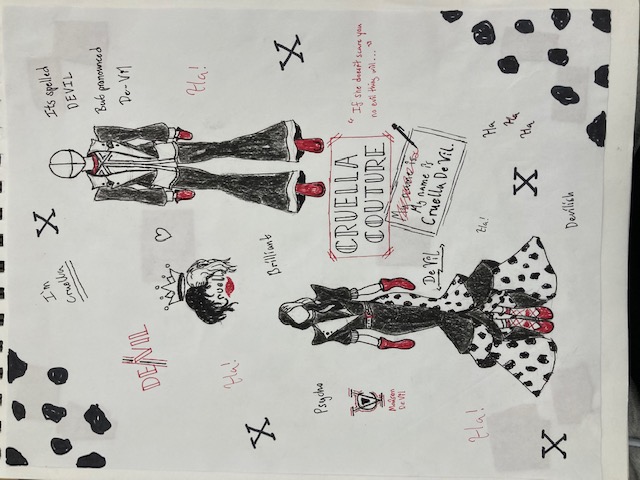 I'm
Cruella
X
Its spelled
DEVIL
But pronounced
De-Vil
DEVIL
Cruella
Ha!
Ha!
X
Brilliant
X
Psycho
Maison
De Vil
CRUELLA
COUTURE
"If she doesn't scare you
no evil thing will..."
My name is
My name is
Cruella De Vil.
De Vil
Ha!
Ha!
Ha
Ha
Ha
X
X
Devilish